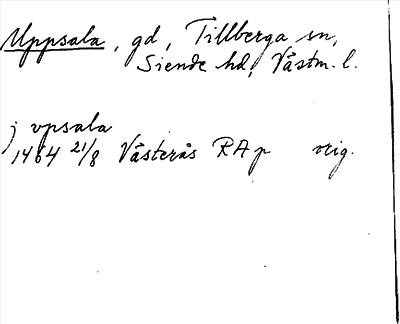 Uppsala, gd, Tillberga sn,
Siende hd, Västm. l.
j vpsala
1464 21/8 Västerås RAp orig.